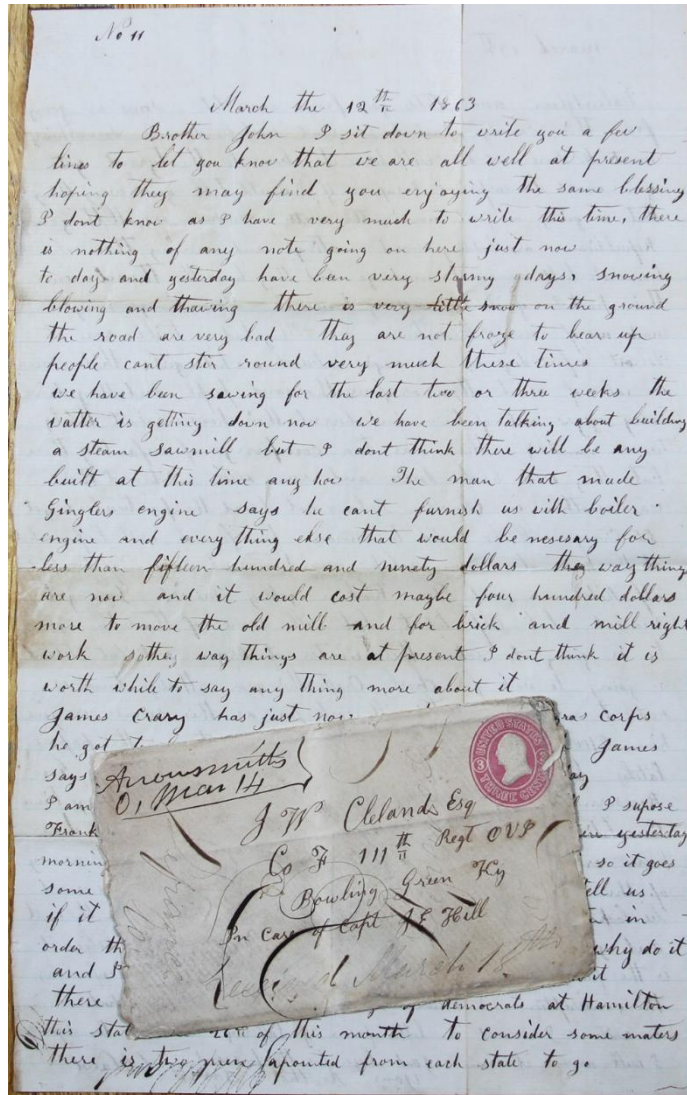 No 11
March the 12th 1863
Brother John I sit down to write you a few
lines to let you know that we are all well at present
hoping they may find you enjoying the same blessing
I dont know as I have very much to write this time, there
is nothing of any note going on here just now
to day and yesterday have been very stormy days, snowing
blowing and thawing there is very little snow on the ground
the road are very bad they are not froze to bear up
people cant stir round very much these times
we have been sawing for the last two or three weeks the
watter is getting down now we have been talking about building
a steam sawmill but I dont think there will be any
built at this time any how The man that made
Ginglers engine says he cant furnish us with boiler
engine and every thing else that would be nesesary for
less than fifteen hundred and ninety dollars they way things
are now and it would cost maybe four hundred dollars
more to move the old mill and for brick and mill right
work so they way things are at present I dont think it is
worth while to say any thing more about it
James Crary has just now corps
he got James
says
I am I supose
Frank yesterday
morning so it goes
some tell us
if it in
order why do it
and I
there democrats at Hamilton
this 26th of this month to consider some maters
there is two men apointed from each state to go
Arrowsmiths
O, Mar 14
UNITED STATES
3
THREE CENTS
J W Cleland Esq
Co F 111th Regt OVI
Bowling Green Ky
In care of Capt J E Hill
Received March 18th